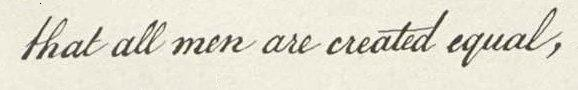 that all men are created equal,